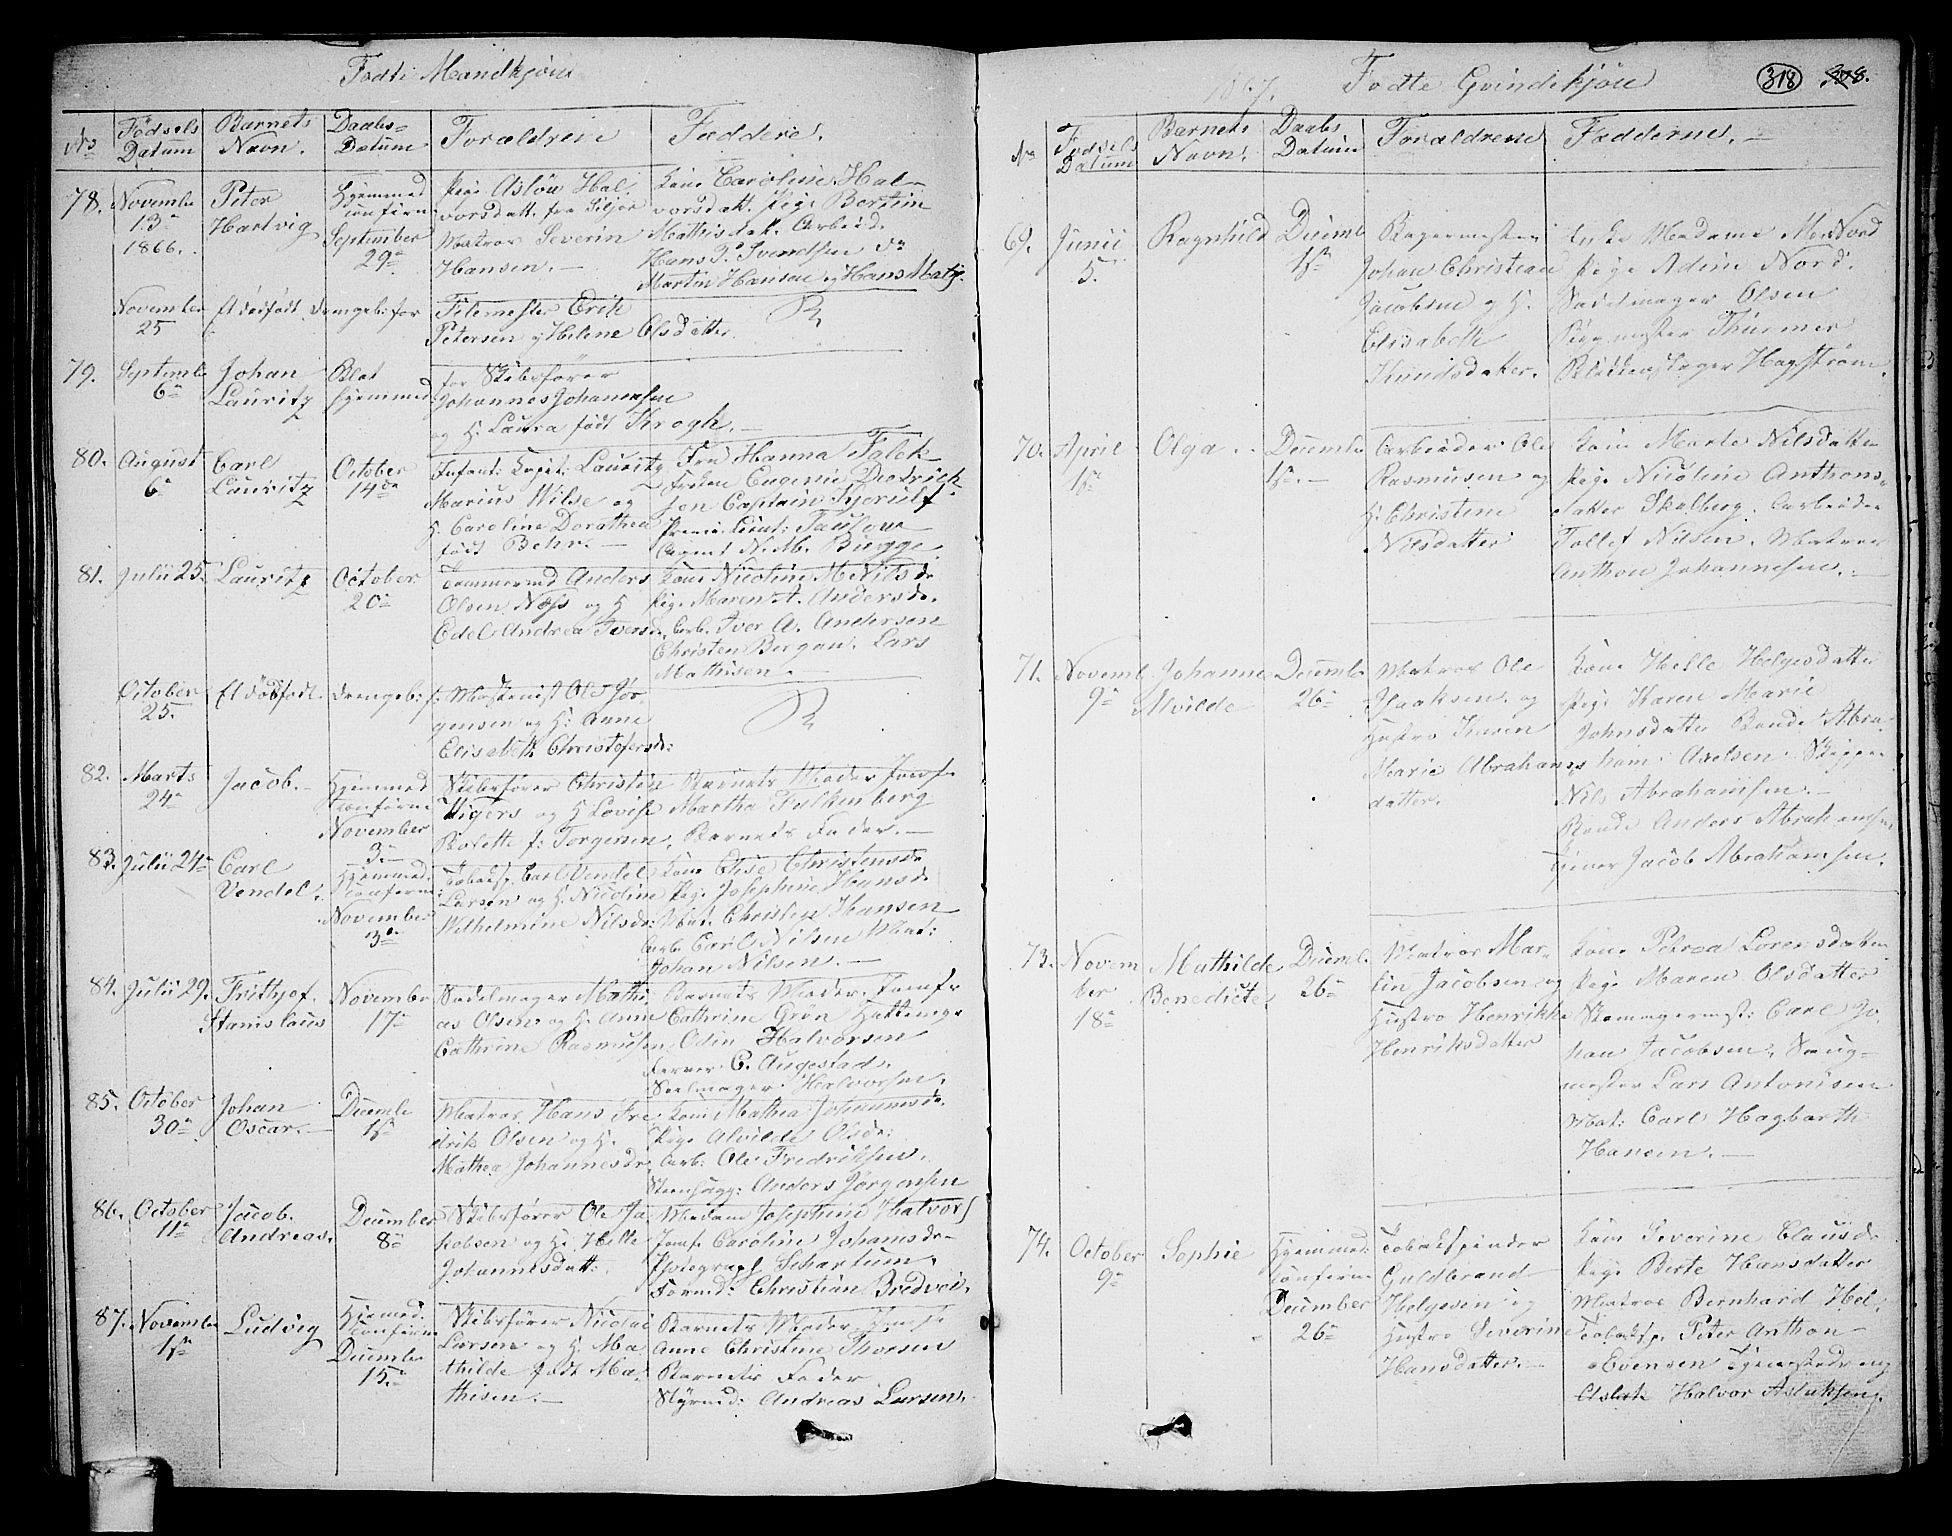 Fødte Mandkjøn
No Fødsels Datum Barnets Navn. Daabs- Datum Forældrene Faddere.
78. Novembr 13de 1866. Peter Hartvig Hjemmed confirm September 29de
Pige Aslöu Hal-
vorsdatt. fra Siljor
Matros Severin
Hansen. —
Kone Caroline Hal-
vorsdatt. Pige Bertin
Mathisdat. Arbeid.
Hans P. Svendsen do
Martin Hansen og Hans Mathj.
November 25 Et dödfödt Drengeb: for
Filemester Erik
Petersen og Helene Olsdatter.
79. Septembr 6te Johan Lauritz Blot hjemmed
for Skibsfører
Johannes Johannesen
og H. Laura født Krogh. —
80. August 6te Carl Lauritz October 14de
Infant: Capit: Lauritz
Marius Wilse og
H. Caroline Dorathea
født Behr. —
Fru Hanna Falck
Frøken Eugenie Diedrick-
sen Captain Hjerulf
Premier Lieut: Faulow
Agent N. M. Bügge.
81. Julii 25. Lauritz October 20de
Tømmermd Anders
Olsen Næss og H
Edel Andrea Iversd.
Kone Nicoline M. Nilsdr
Pige Maren A. Andersdr.
Arb. Iver A. Andersen
Christen Bergan. Lars
Mathisen. —
October 25. Et dødfødt Drengeb: f.
Maskenist Ole Jør-
gensen og H: Anne
Elisabeth Christofersdr:
82. Marts 24de Jacob. — Hjemmed Confirm November 3de
Skibsfører Christen
Vigers og H Lovise
Bolette f: Torgersen.
Barnets Moder Jomf.
Martha Falkenberg
Barnets Fader. —
83. Julii 24de Carl Vendel. Hjemmed. Confirm: November 3de
Tobaksp. Carl Vendel
Larsen og H. Nicoline
Wilhelmine Nilsdr:
Kone Elise Christensdr
Pige Josephine Hansdr
Mat. Christen Hansen
Arb. Carl Nilsen Mat:
Johan Nilsen. —
84. Julii 29. Frithjof. Stanislaus November 17de
Sadelmager Mathi-
as Olsen og H. Anne
Cathrine Rasmusen
Barnets Moder. Jomfr
Cathrine Grøn Hattemgr
Odin Halvorsen
Farver C. Augestad.
Sadelmager Halvorsen.
85. October 30de Johan Oscar. — Decembr 1ste
Matros Hans Fre
drik Olsen og H.
Mathea Johannesdr
Kone Mathea Johannesdr.
Pige Alvilde Olsdr:
Arb: Ole Fredriksen.
Steenhugg: Anders Jørgensen
86. October 11te Jacob. Andreas. December 8de
Skibsfører Ole Ja-
kobsen og H: Helle
Johannesdatt:
Madam Josephine Halvors
Jomf. Caroline Johansdr-
Photograf Schartum.
Formd: Christian Bredvei.
87. Novembr 1ste Ludvig Hjemed. Confirm Decembr 15de
Skibsfører Nicolai
Larsen og H. Ma
thilde født Ma-
thisen. —
Barnets Moder.
Anne Christine Thorsen
Barnets Fader
Styrmd: Andreas Larsen.
1867. Fødte Qvindekjøn 318
No Fødsels Datum Barnets Navn. Daabs Datum Forældrene Fadderne. —
69. Junii 5. Ragnhild Decembr 1ste
Bagermester
Johan Christian
Jacobsen og H.
Elisabeth
Knudsdatter.
Enke Madame M. Nord
Pige Adine Nord.
Sadelmager Olsen
Bygmester Thurmer
Blikkenslager Hagstrøm.
70. April 1ste Olga. . Decembr 1ste. —
Arbeider Ole
Rasmusen og
H. Christine
Nilsdatter
Kone Marte Nilsdatter
Pige Nicoline Anthons-
datter Skalberg. Arbeider
Tollef Nilsen. Matros
Anthon Johannesen. —
71. Novemb 9de Johanne Alvilde Decembr 26de
Matros Ole
Isaaksen. og
Hustro Karen
Marie Abrahams
datter.
Kone Helle Helgesdatter
Pige Karen Marie
Johnsdatter Bonde Abra-
ham Axelsen. Skipper
Nils Abrahamsen. —
Bonde Anders Abrahamsen
Jacob Abrahamsen.
73. Novem ber 18de Mathilde Benedicte Decemb 26de
Matros Mar-
tin Jacobsen og
Hustro Henrikke
Henriksdatter
Kone Petrea Lorensdatter
Pige Maren Olsdatter
Skomagermst: Carl Jo
han Jacobsen. Saug-
mester Lars Antonisen
Mat: Carl Hagbarth
Hansen. —
74. October 9de Sophie Hjemmed: Confirm December 26de
Tobakspinder
Guldbrand
Helgesen og
Hustro Severine
Hansdatter. —
Kone Severine Clausdr
Pige Berte Hansdatter
Matros Bernhard Hel-
Tobaksp. Peter Anthon-
Evensen Tjenestedreng
Aslak Halvor Aslaksen.